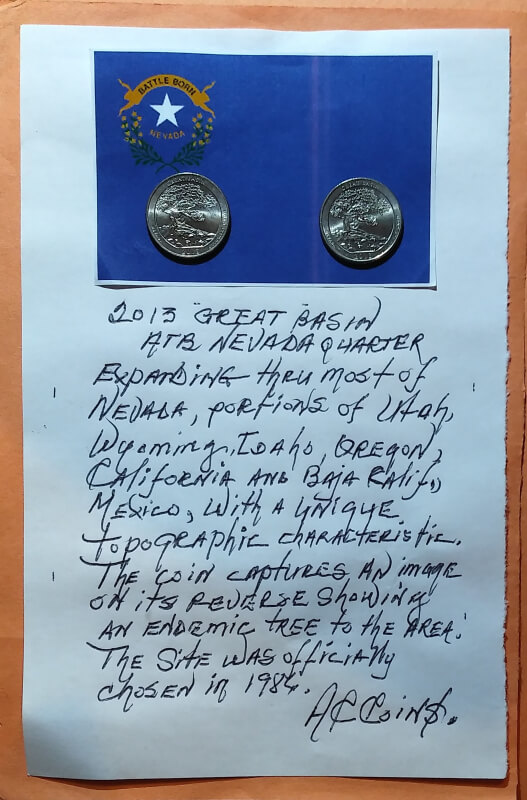 BATTLE BORN
NEVADA
2013 "GREAT BASIN
ATB NEVADA QUARTER
Expanding thru most of
Nevada, portions of Utah,
Wyoming, Idaho, Oregon,
California and Baja Calif.,
Mexico, with a unique
topographic characteristic.
The coin captures an image
on its reverse showing
an endemic tree to the area.
The site was officially
chosen in 1986.
ACCoin$.